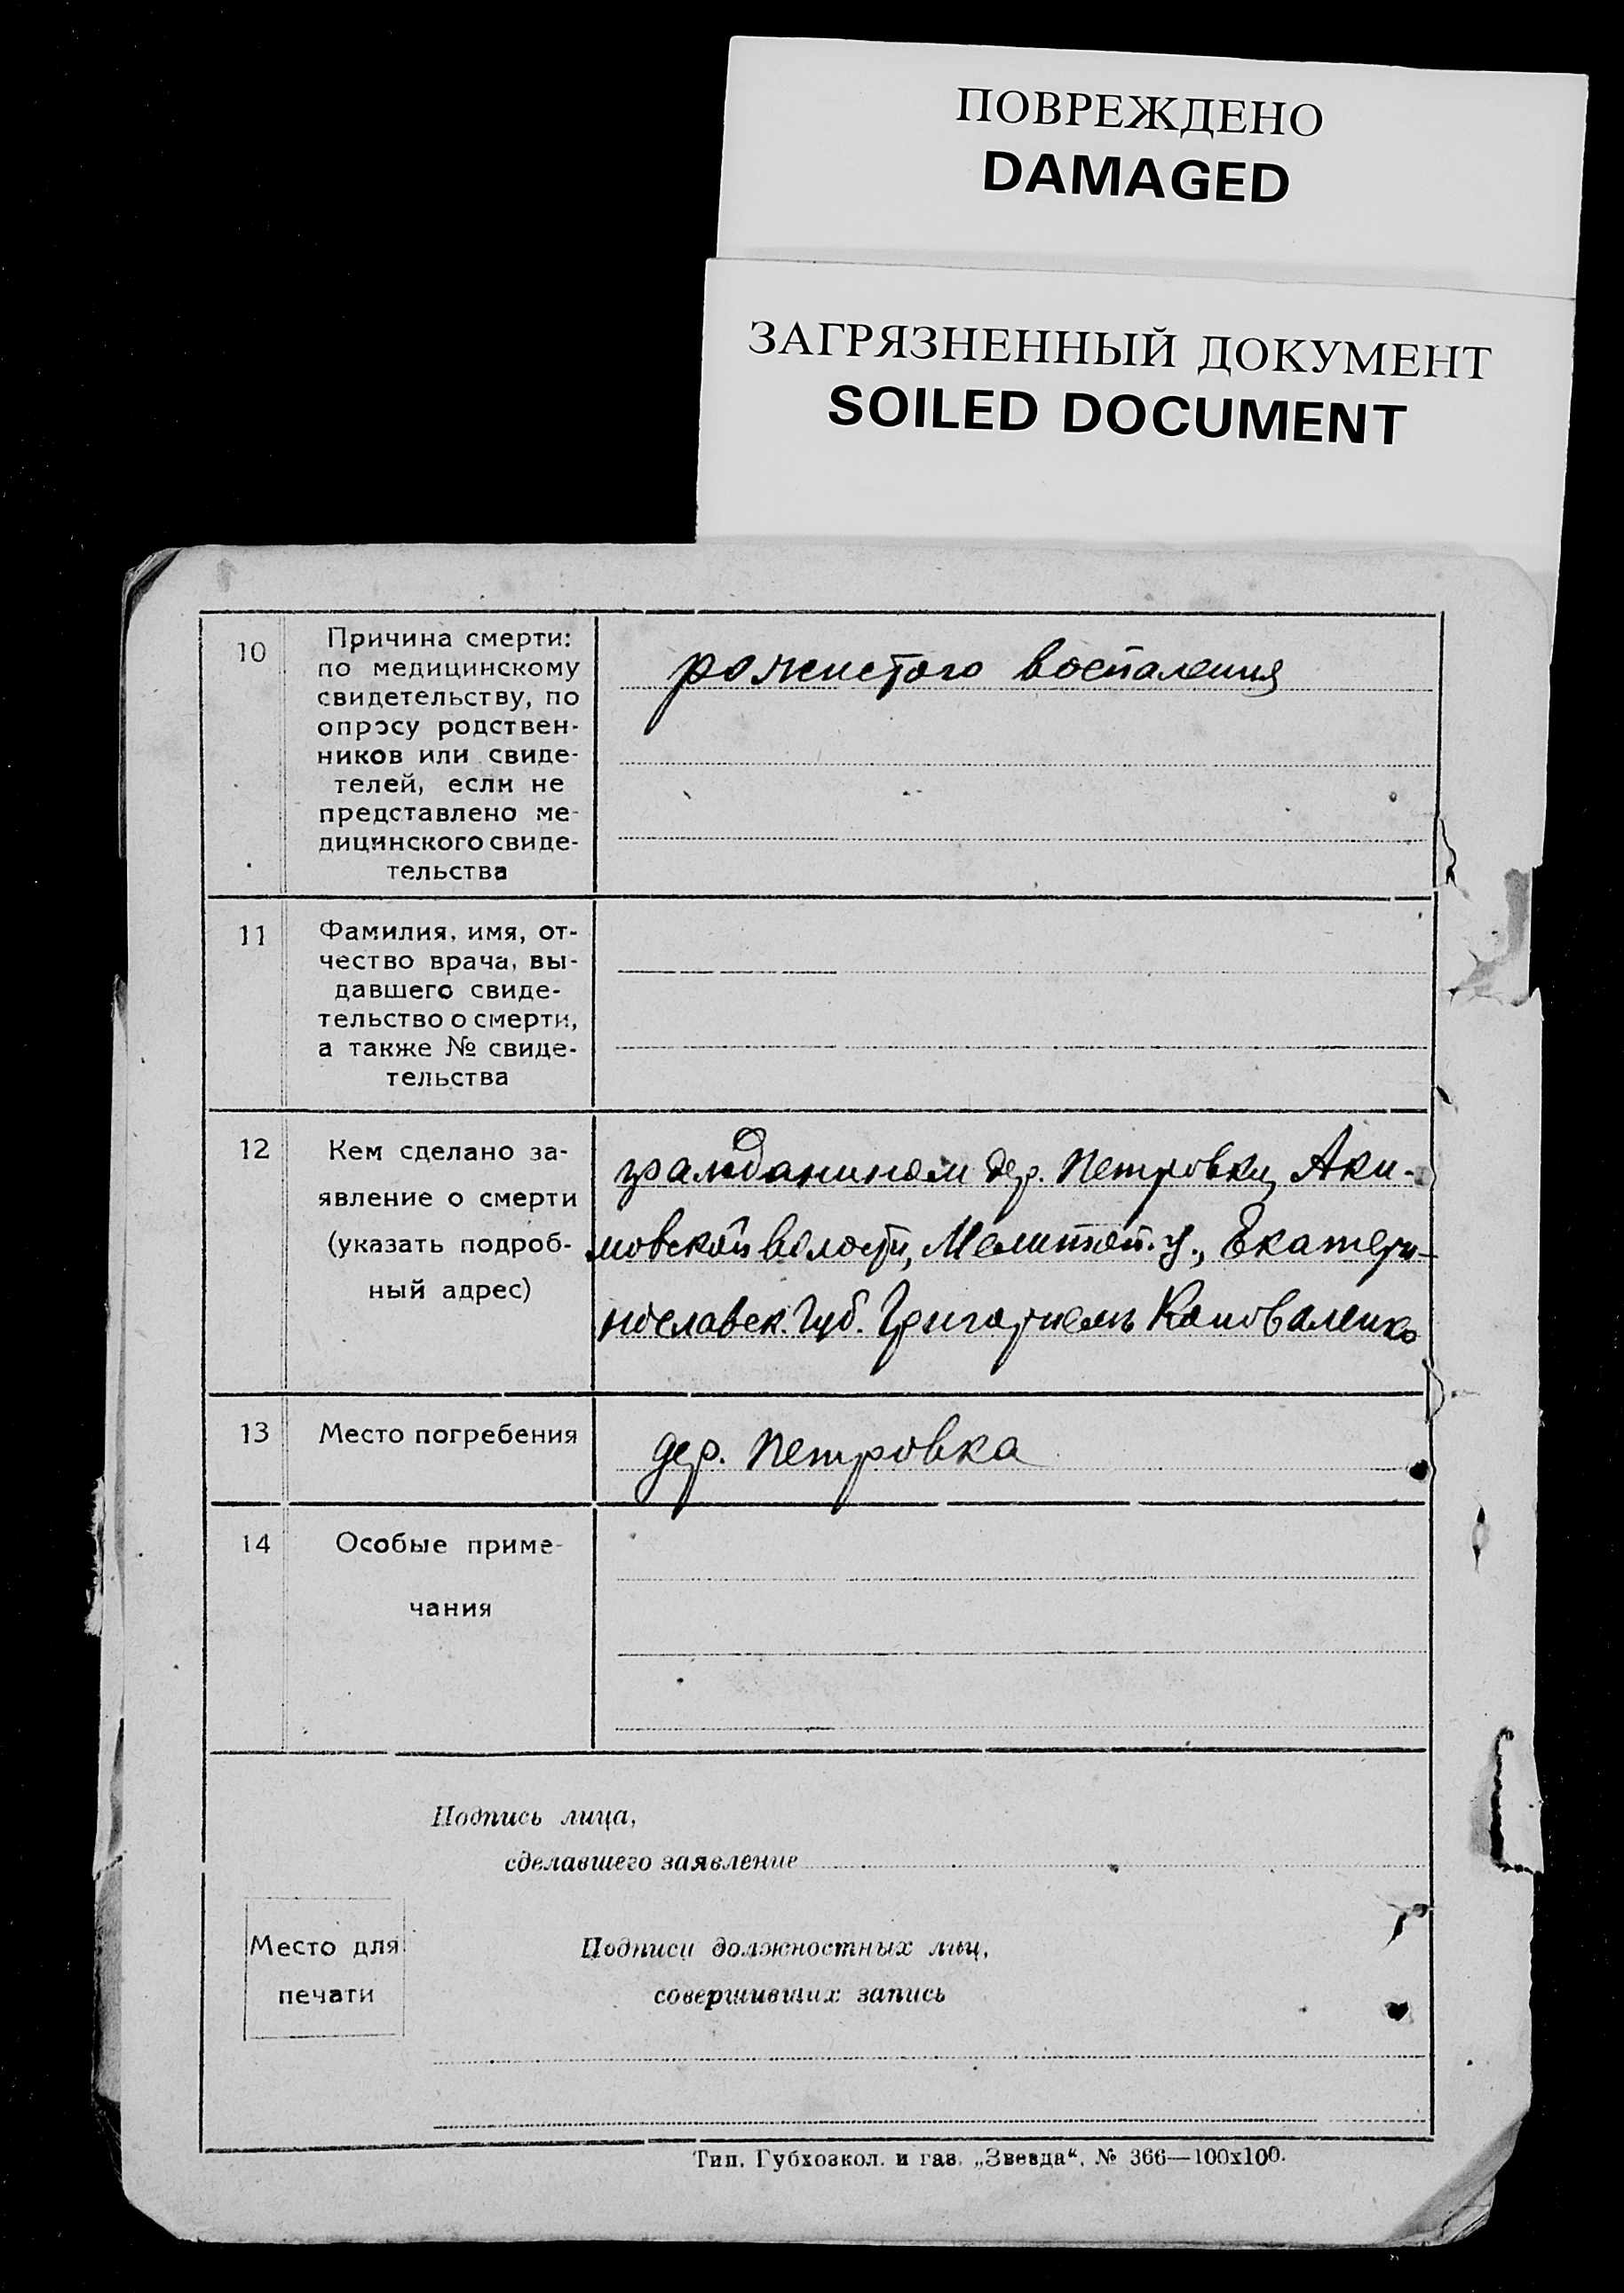 ПОВРЕЖДЕНО
DAMAGED
ЗАГРЯЗНЕННЫЙ ДОКУМЕНТ
SOILED DOCUMENT
10
Причина смерти:
по медицинскому
свидетельству, по
опросу родствен-
ников или свиде-
телей, если не
представлено ме-
дицинского свиде-
тельства
рожистого воспаления
11
Фамилия, имя, от-
чество врача, вы-
давшего свиде-
тельство о смерти,
а также № свиде-
тельства
12
Кем сделано за-
явление о смерти
(указать подроб-
ный адрес)
гражданином дер. Петровки, Аки-
мовской волости, Мелитоп. у., Екатери-
нославск. Губ. Григорием Коноваленко
13
Место погребения
дер. Петровка
14
Особые приме-
чания
Подпись лица,
сделавшего заявление
Место для
печати
Подписи должностных лиц,
совершивших запись
Тип. Губхозкол. и газ. „Звезда“. № 366—100х100.